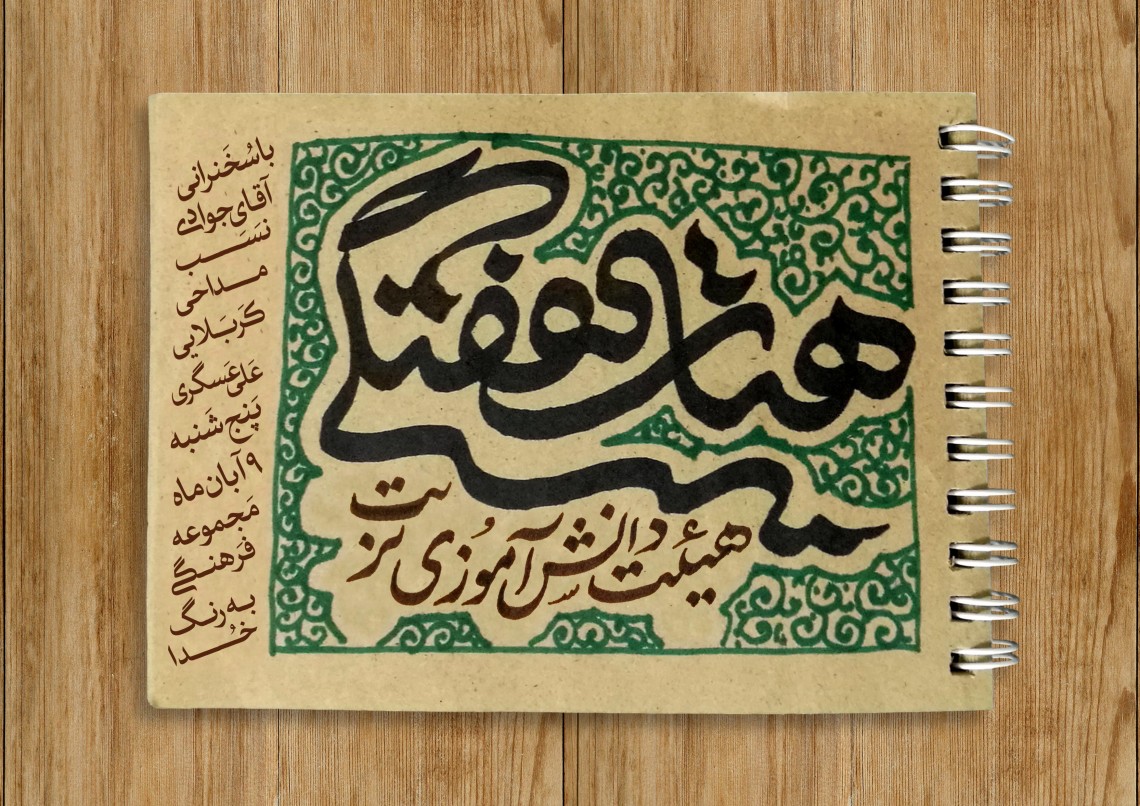 هیئت هفتگی
هیئت دانش‌آموزی تربت
باسُخَنرانی
آقای جوادی
نَسَب
مداحی
کَربَلایی
عَلی عَسگری
پَنج شَنبه
۹ آبان ماه
مَجموعه
فَرهنگی
به رنگ
خُدا